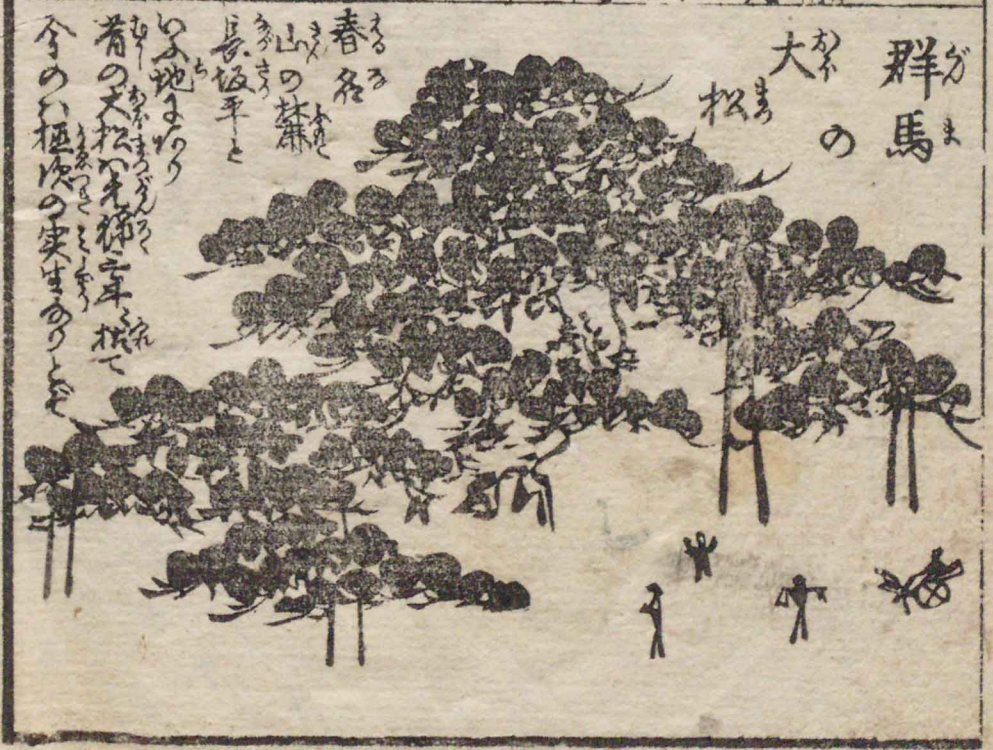 群馬の
大松
春名
山の麓
長坂平と
いふ地にあり
昔の大松は元禄二年ニ枯て
今のハ植次の実生なりとぞ